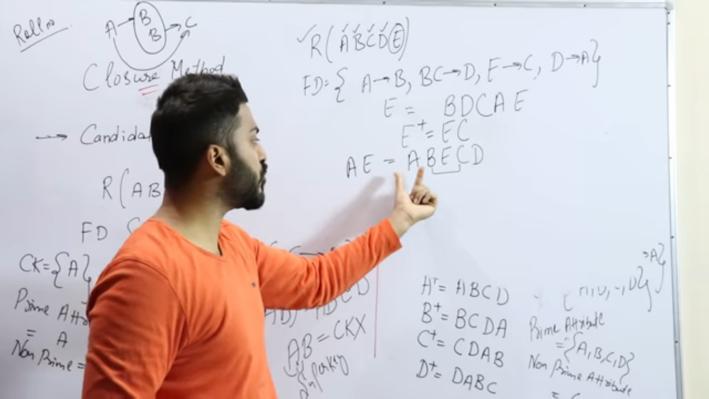 Roll no
A → B B → C
Closure Method
→ Candida
R(AB
FD {
CK = {A}
Prime Att
= A
Non Prime =
✓ R(ABCD(E))
FD = { A→B, BC→D, E→C, D→A}
E = BDCAE
E⁺ = EC
AE = ABECD
ABCD
AB = CKX
A⁺ = ABCD
B⁺ = BCDA
C⁺ = CDAB
D⁺ = DABC
→A}
Prime Attribute
= {A,B,C,D}
Non Prime Attribute